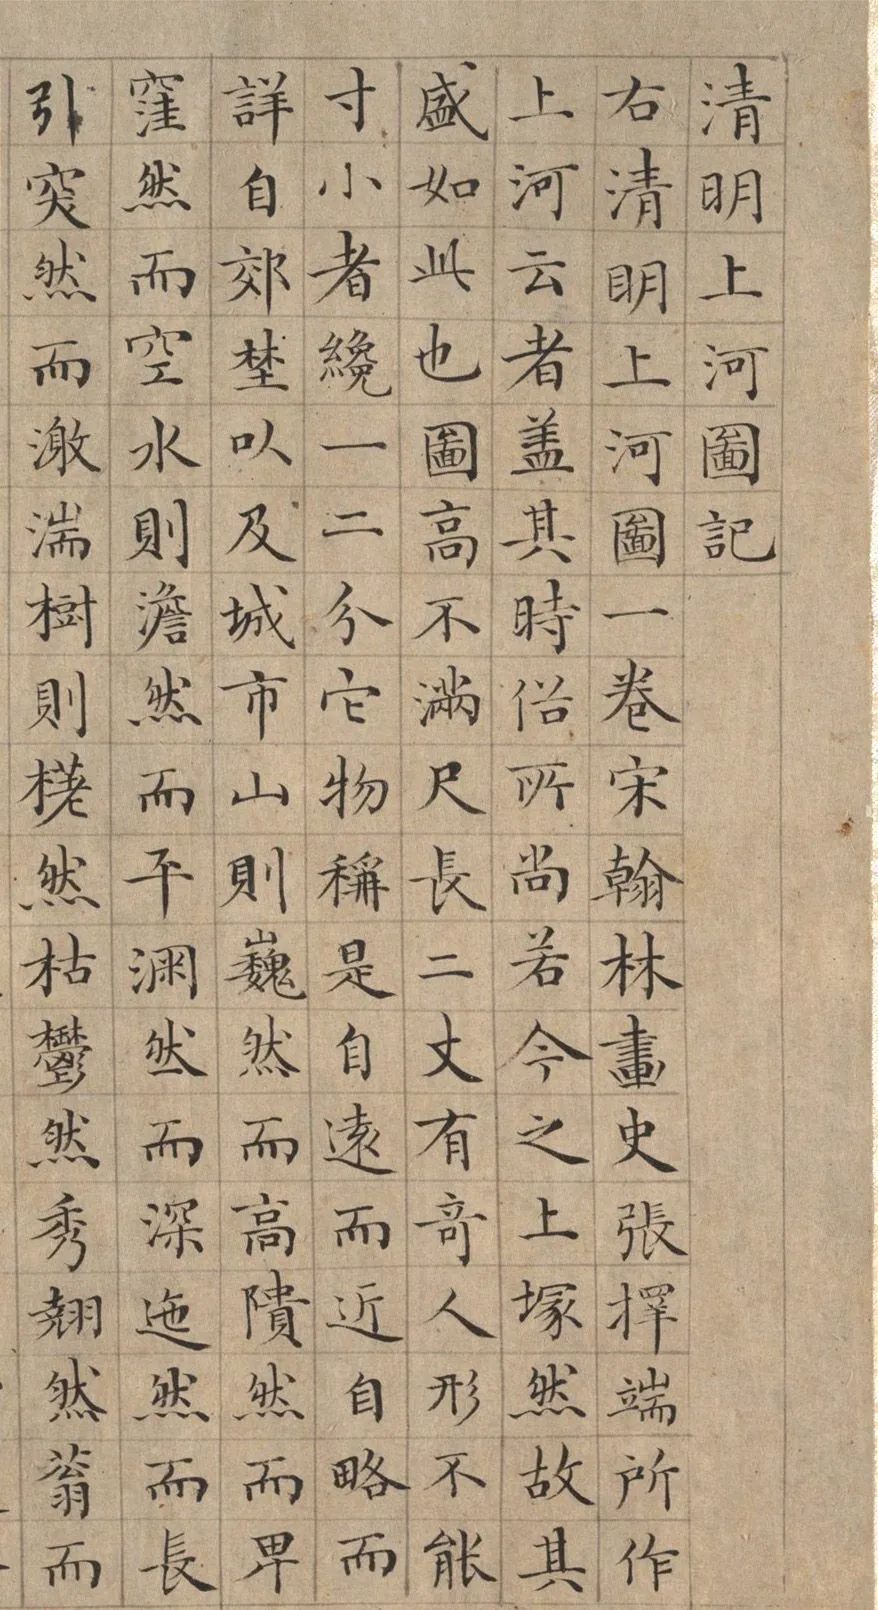 清明上河圖記
右清明上河圖一卷宋翰林畫史張擇端所作
上河云者葢其時俗所尚若今之上塚然故其
盛如此也圖高不滿尺長二丈有奇人形不能
寸小者纔一二分它物稱是自遠而近自略而
詳自郊埜以及城市山則巍然而高隤然而卑
窪然而空水則澹然而平渊然而深迤然而長
引突然而激湍樹則槎然枯鬱然秀翹然蓊而